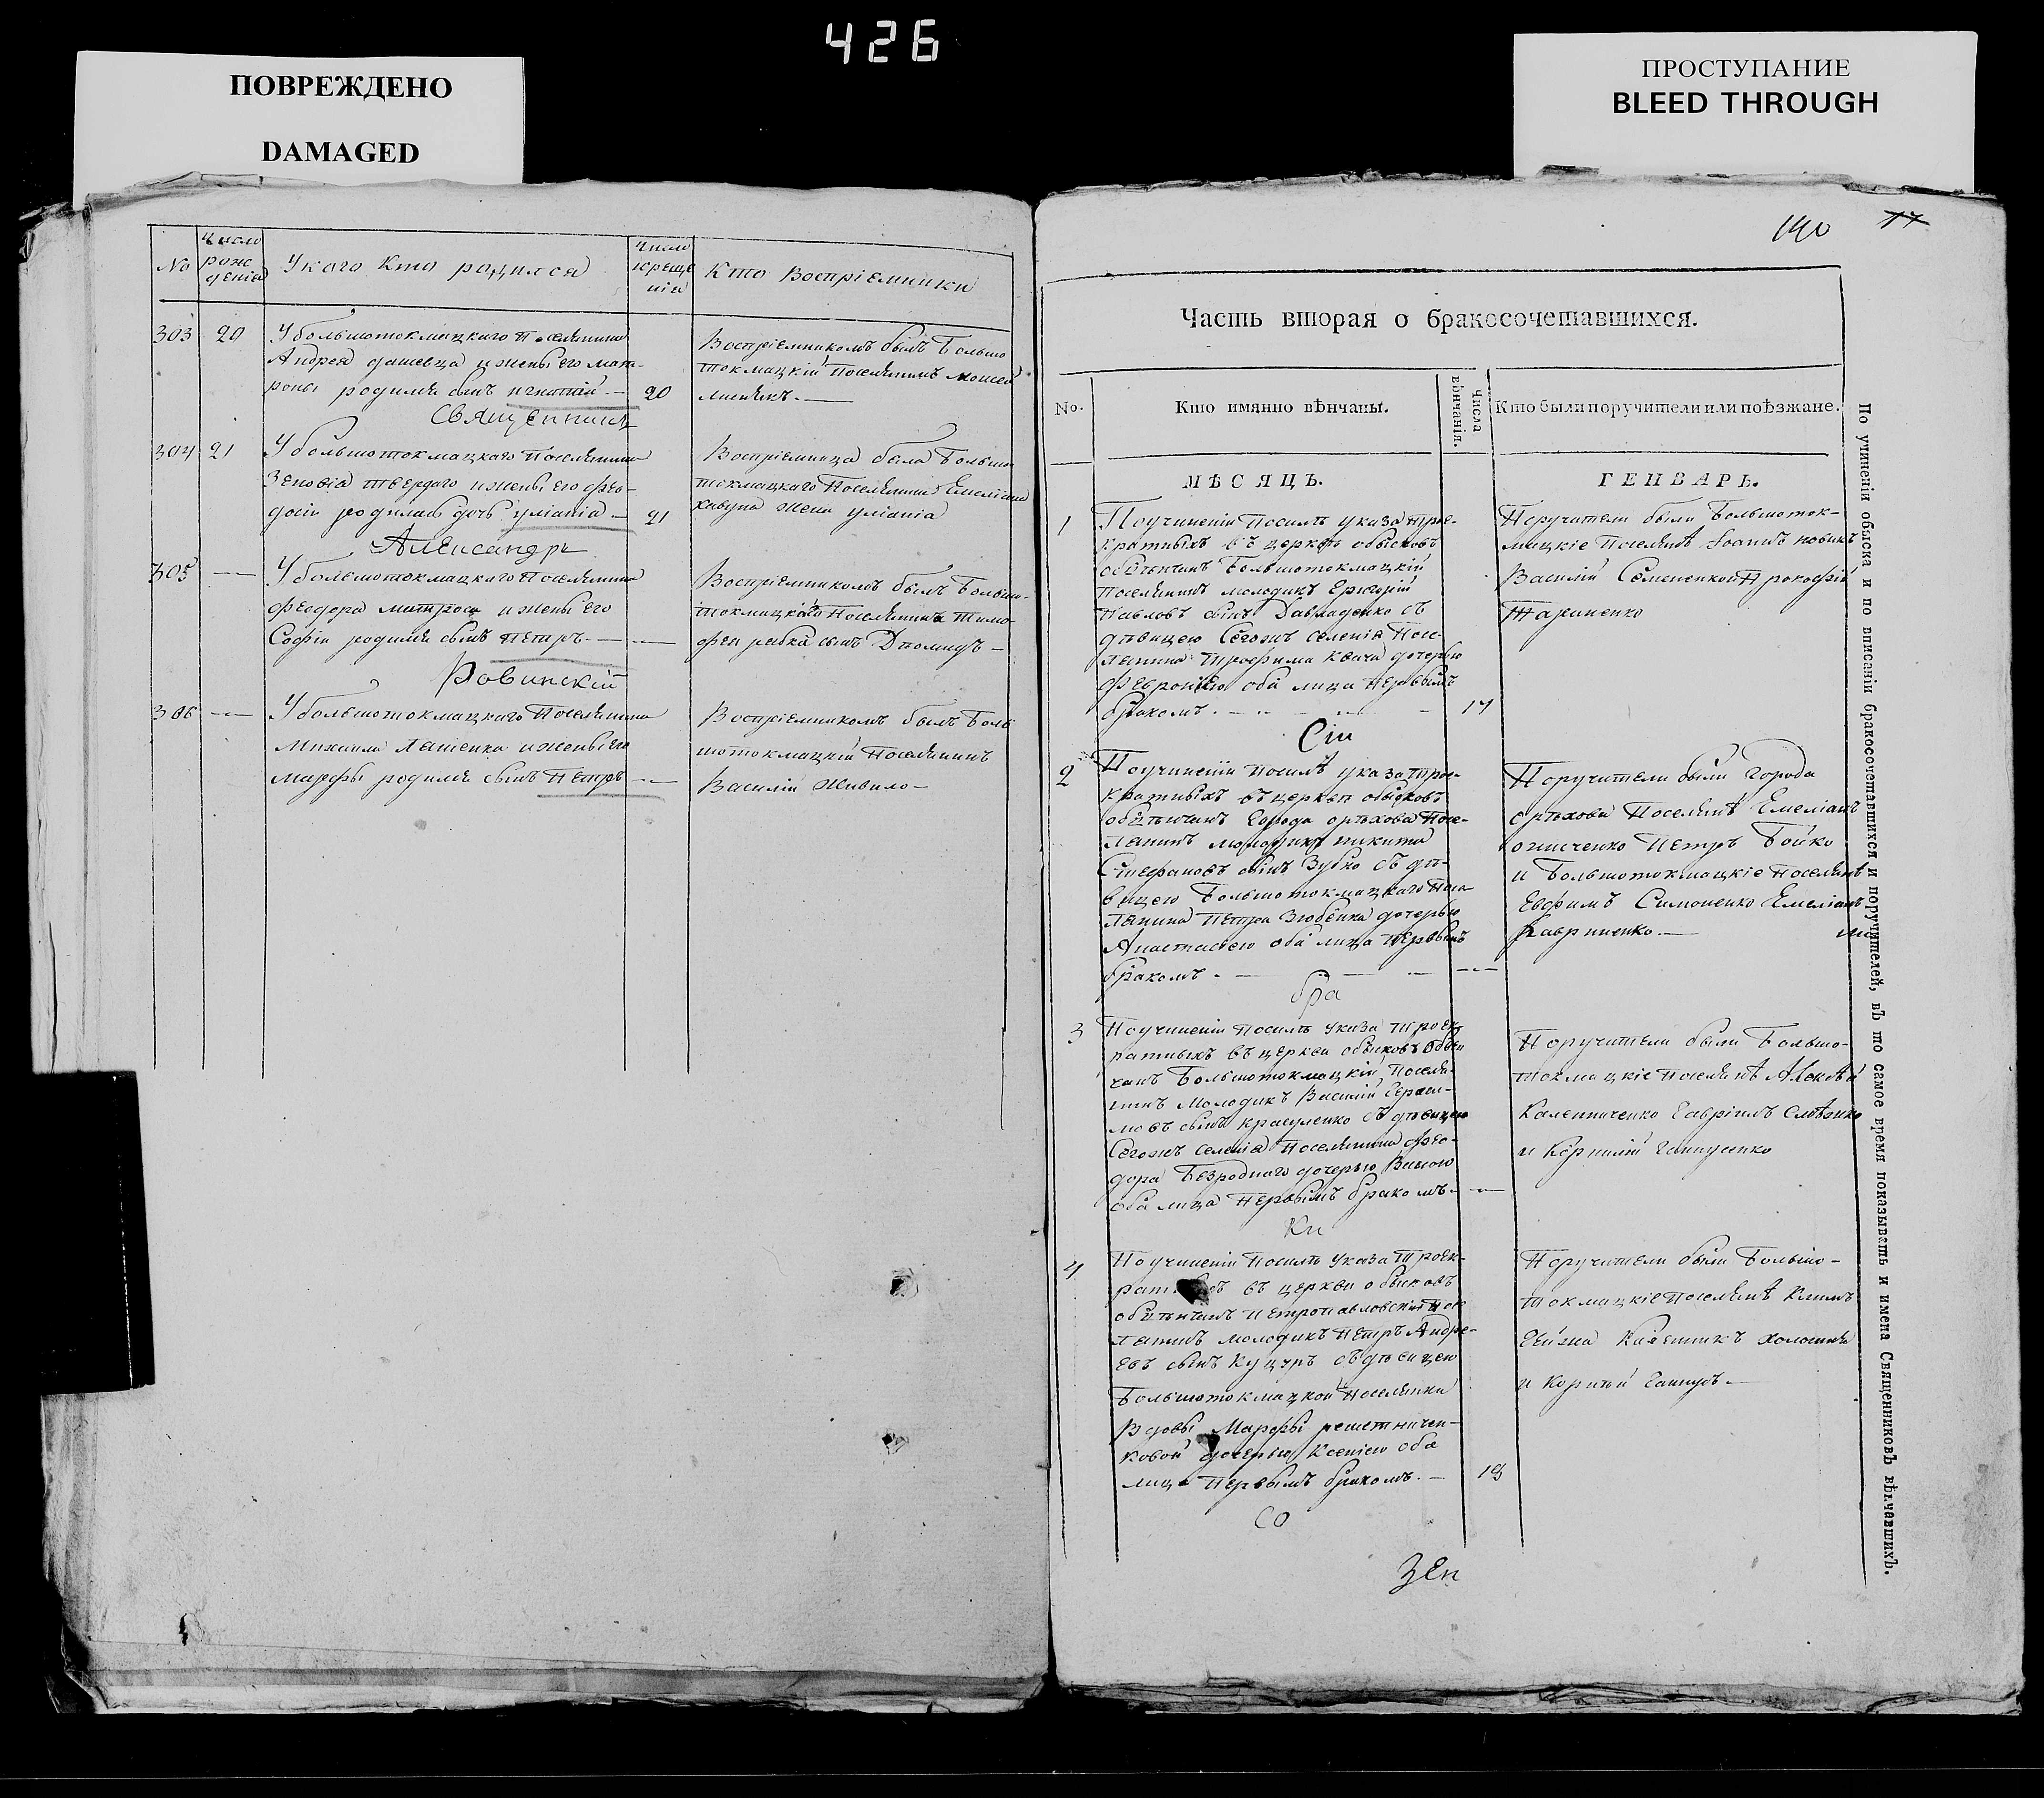 426
ПОВРЕЖДЕНО
DAMAGED
ПРОСТУПАНИЕ
BLEED THROUGH
No
Число рождѣнія
У кого кто родился
Число крещенія
Кто Воспріемники
303 20
У большотокмацкаго Поселянина
Андрея
и жены его мат-
роны родился сынъ игнатій — 20
Воспріемникомъ былъ Большо
токмацкій Поселянинъ Моисей
Священникъ
304 21
У большотокмацкаго Поселянина
Зеновіа твердаго и жены его Фео-
досіи родилась дочь уліанія — 21
Воспріемница была Больше
токмацкаго Поселянина Емеліана
кавуна жена уліанія
Александръ
305 —
У большотокмацкаго Поселянина
Феодора матроса и жены его
Софіи родился сынъ Петръ — —
Воспріемникомъ былъ Больше-
токмацкаго Поселянина Тимо
фея рябка сынъ Діомидъ —
Ровинскій
306 —
У большотокмацкаго Поселянина
Михаила Ляшенка и жены его
Марфы родился сынъ Петръ — —
Воспріемникомъ былъ Боль
шотокмацкій Поселянинъ
Василій Живило —
140 77
Часть вторая о бракосочетавшихся.
No.
Кто имянно вѣнчаны.
Числа вѣнчанія.
Кто были поручители или поѣзжане.
МѢСЯЦЪ.
ГЕНВАРЬ.
1
По учиненіи посилѣ указа трое-
кратныхъ въ церкви обысковъ
обвѣнчанъ Большотокмацкій
поселянинъ молодикъ Григорій
Павловъ сынъ Давиденко съ
дѣвицею Сегожъ селенія Посе-
лянина Трофима Квача дочерью
Феврониею оба лица первымъ
бракомъ. — 17
Поручители были Большоток-
мацкіе Поселянѣ Іоаннъ новикъ
Василій Семененко и Прокофій
Тараненко
Сіи
2
По учиненіи посилѣ указа трое-
кратныхъ въ церкви обысковъ
обвѣнчанъ города орѣхова Посе-
лянинъ молодикъ никита
Стефановъ сынъ Зубко съ дѣ-
вицею Большотокмацкаго Посе
лянина Петра Зюбенка дочерью
Анастасіею оба лица первымъ
бракомъ. — —
Поручители были Города
орѣхова Поселянѣ Емеліанъ
онисченко Петръ Бойко
и Большотокмацкіе поселянѣ
Евфимъ Симоненко Емеліанъ
Гавриленко. —
бра
3
По учиненіи посилѣ указа троек
ратныхъ въ церкви обысковъ обвѣн
чанъ Большотокмацкій Поселя-
нинъ Молодикъ Василій Гераси-
мовъ сынъ Красуленко съ дѣвицею
Сегожъ селенія Поселянина Фео-
дора Безроднаго дочерью
оба лица Первымъ бракомъ. —
Поручители были Большо-
токмацкіе Поселянѣ Алексѣй
Калениченко Гавріилъ
и Корнилій
ки
4
По учиненіи посилѣ указа троек-
въ церкви обысковъ
обвѣнчанъ Петропавловскій Посе
лянинъ молодикъ Петръ Андре-
евъ сынъ Куцъ съ дѣвицею
Большотокмацкой Поселянки
Вдовы Марфы решетничен-
ковой дочерью Ксеніею оба
лица Первымъ бракомъ. — 18
Поручители были Большо-
токмацкіе Поселянѣ Климъ
и
со
зЕп
По учиненіи обыска и по вписаніи бракосочетавшихся и поручителей, въ то самое время показывать и имена Священниковъ вѣнчавшихъ.